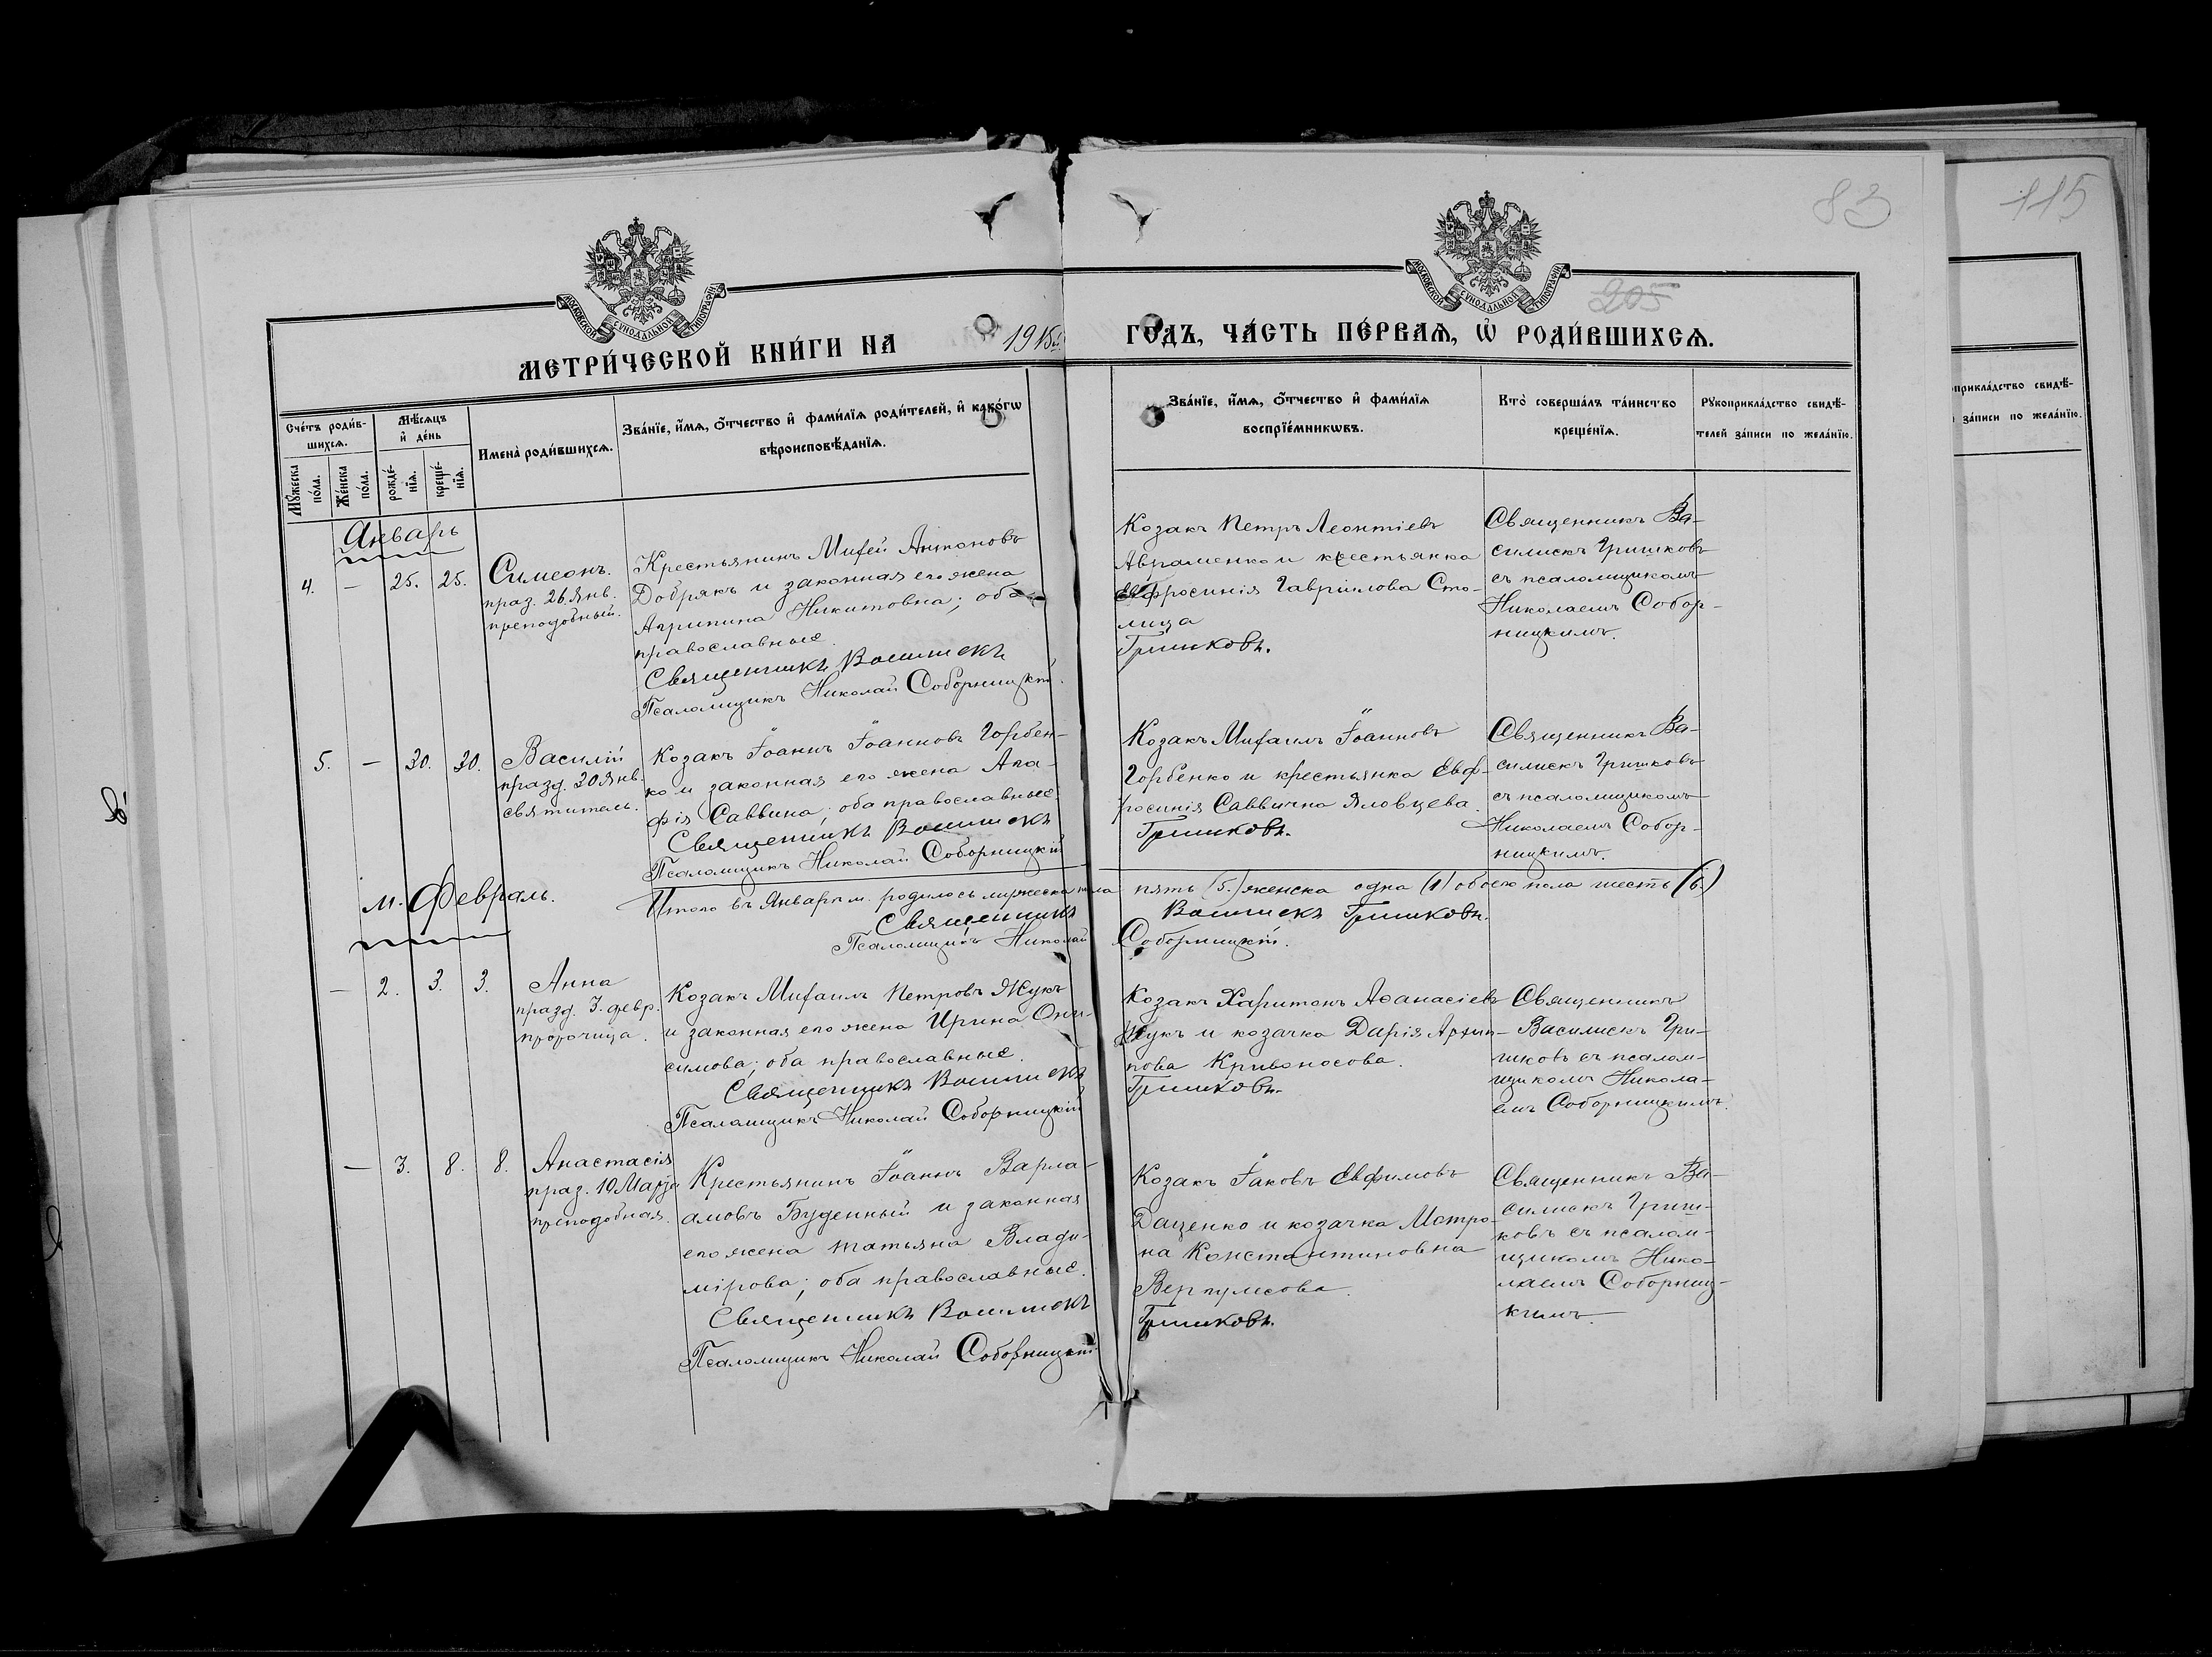 83
115
205
МОСКОВСКОЙ СУНОДАЛЬНОЙ ТИПОГРАФІИ
МОСКОВСКОЙ СУНОДАЛЬНОЙ ТИПОГРАФІИ
МЕТРИ́ЧЕСКОЙ КНИ́ГИ НА 1915
ГО́ДЪ, ЧА́СТЬ ПЕ́РВАѦ, Ѡ҆ РОДИ́ВШИХСѦ.
Сче́тъ роди́в-
шихсѧ.
Мꙋ́жеска по́ла.
Же́нска по́ла.
Мѣ́сѧцъ
и҆ де́нь
рожде́-
нїѧ.
креще́-
нїѧ.
Имена̀ роди́вшихсѧ.
Зва́нїе, и҆́мѧ, ѻ҆́тчество и҆ фами́лїѧ роди́телей, и҆ како́гѡ
вѣроисповѣ́данїѧ.
Зва́нїе, и҆́мѧ, ѻ҆́тчество и҆ фами́лїѧ
воспрїе́мникѡвъ.
Кто̀ соверша́лъ та́инство
креще́нїѧ.
Рꙋкоприкла́дство свидѣ́-
телей за́писи по жела́нїю.
оприкла́дство свидѣ́-
за́писи по жела́нїю.
Январь
4. — 25. 25. Симеонъ.
праз. 26. Янв.
преподобный.
Крестьянинъ Михей Антоновъ
Добрякъ и законная его жена
Агрипина Никитовна; оба
православные.
Священникъ Василискъ
Псаломщикъ Николай Соборницкій.
Козакъ Петръ Леонтіевъ
Авраменко и крестьянка
Евфросинія Гавріилова Сто-
лица
Гришковъ.
Священникъ Ва-
силискъ Гришковъ
съ псаломщикомъ
Николаемъ Собор-
ницкимъ.
5. — 30. 30. Василій
празд. 30 Янв.
святитель.
Козакъ Іоаннъ Іоанновъ Горбен-
ко и законная его жена Ага-
фія Саввина; оба православные.
Священникъ Василискъ
Псаломщикъ Николай Соборницкій
Козакъ Михаилъ Іоанновъ
Горбенко и крестьянка Евф-
росинія Саввична Яловцева.
Гришковъ.
Священникъ Ва-
силискъ Гришковъ
съ псаломщикомъ
Николаемъ Собор-
ницкимъ.
Итого въ Январѣ м. родилось мужеска пола пять (5.) женска одна (1) обоего пола шесть (6.)
Священникъ Василискъ Гришковъ.
Псаломщикъ Николай Соборницкій.
м. Февраль.
— 2. 3. 3. Анна
празд. 3. февр.
пророчица.
Козакъ Михаилъ Петровъ Жукъ
и законная его жена Ирина Они-
симова; оба православные.
Священникъ Василискъ
Псаломщикъ Николай Соборницкій
Козакъ Харитонъ Аѳанасіевъ
Жукъ и козачка Дарія Архип-
пова Кривоносова.
Гришковъ.
Священникъ
Василискъ Гри-
шковъ съ псалом-
щикомъ Никола-
емъ Соборницкимъ.
— 3. 8. 8. Анастасія
праз. 10 Марта
преподобная.
Крестьянинъ Іоаннъ Варла-
амовъ Буденный и законная
его жена Татьяна Влади-
мірова; оба православные.
Священникъ Василискъ
Псаломщикъ Николай Соборницкій
Козакъ Іаковъ Евфимовъ
Даценко и козачка Матро-
на Константиновна
Гришковъ.
Священникъ Ва-
силискъ Гриш-
ковъ съ псалом-
щикомъ Нико-
лаемъ Соборниц-
кимъ.